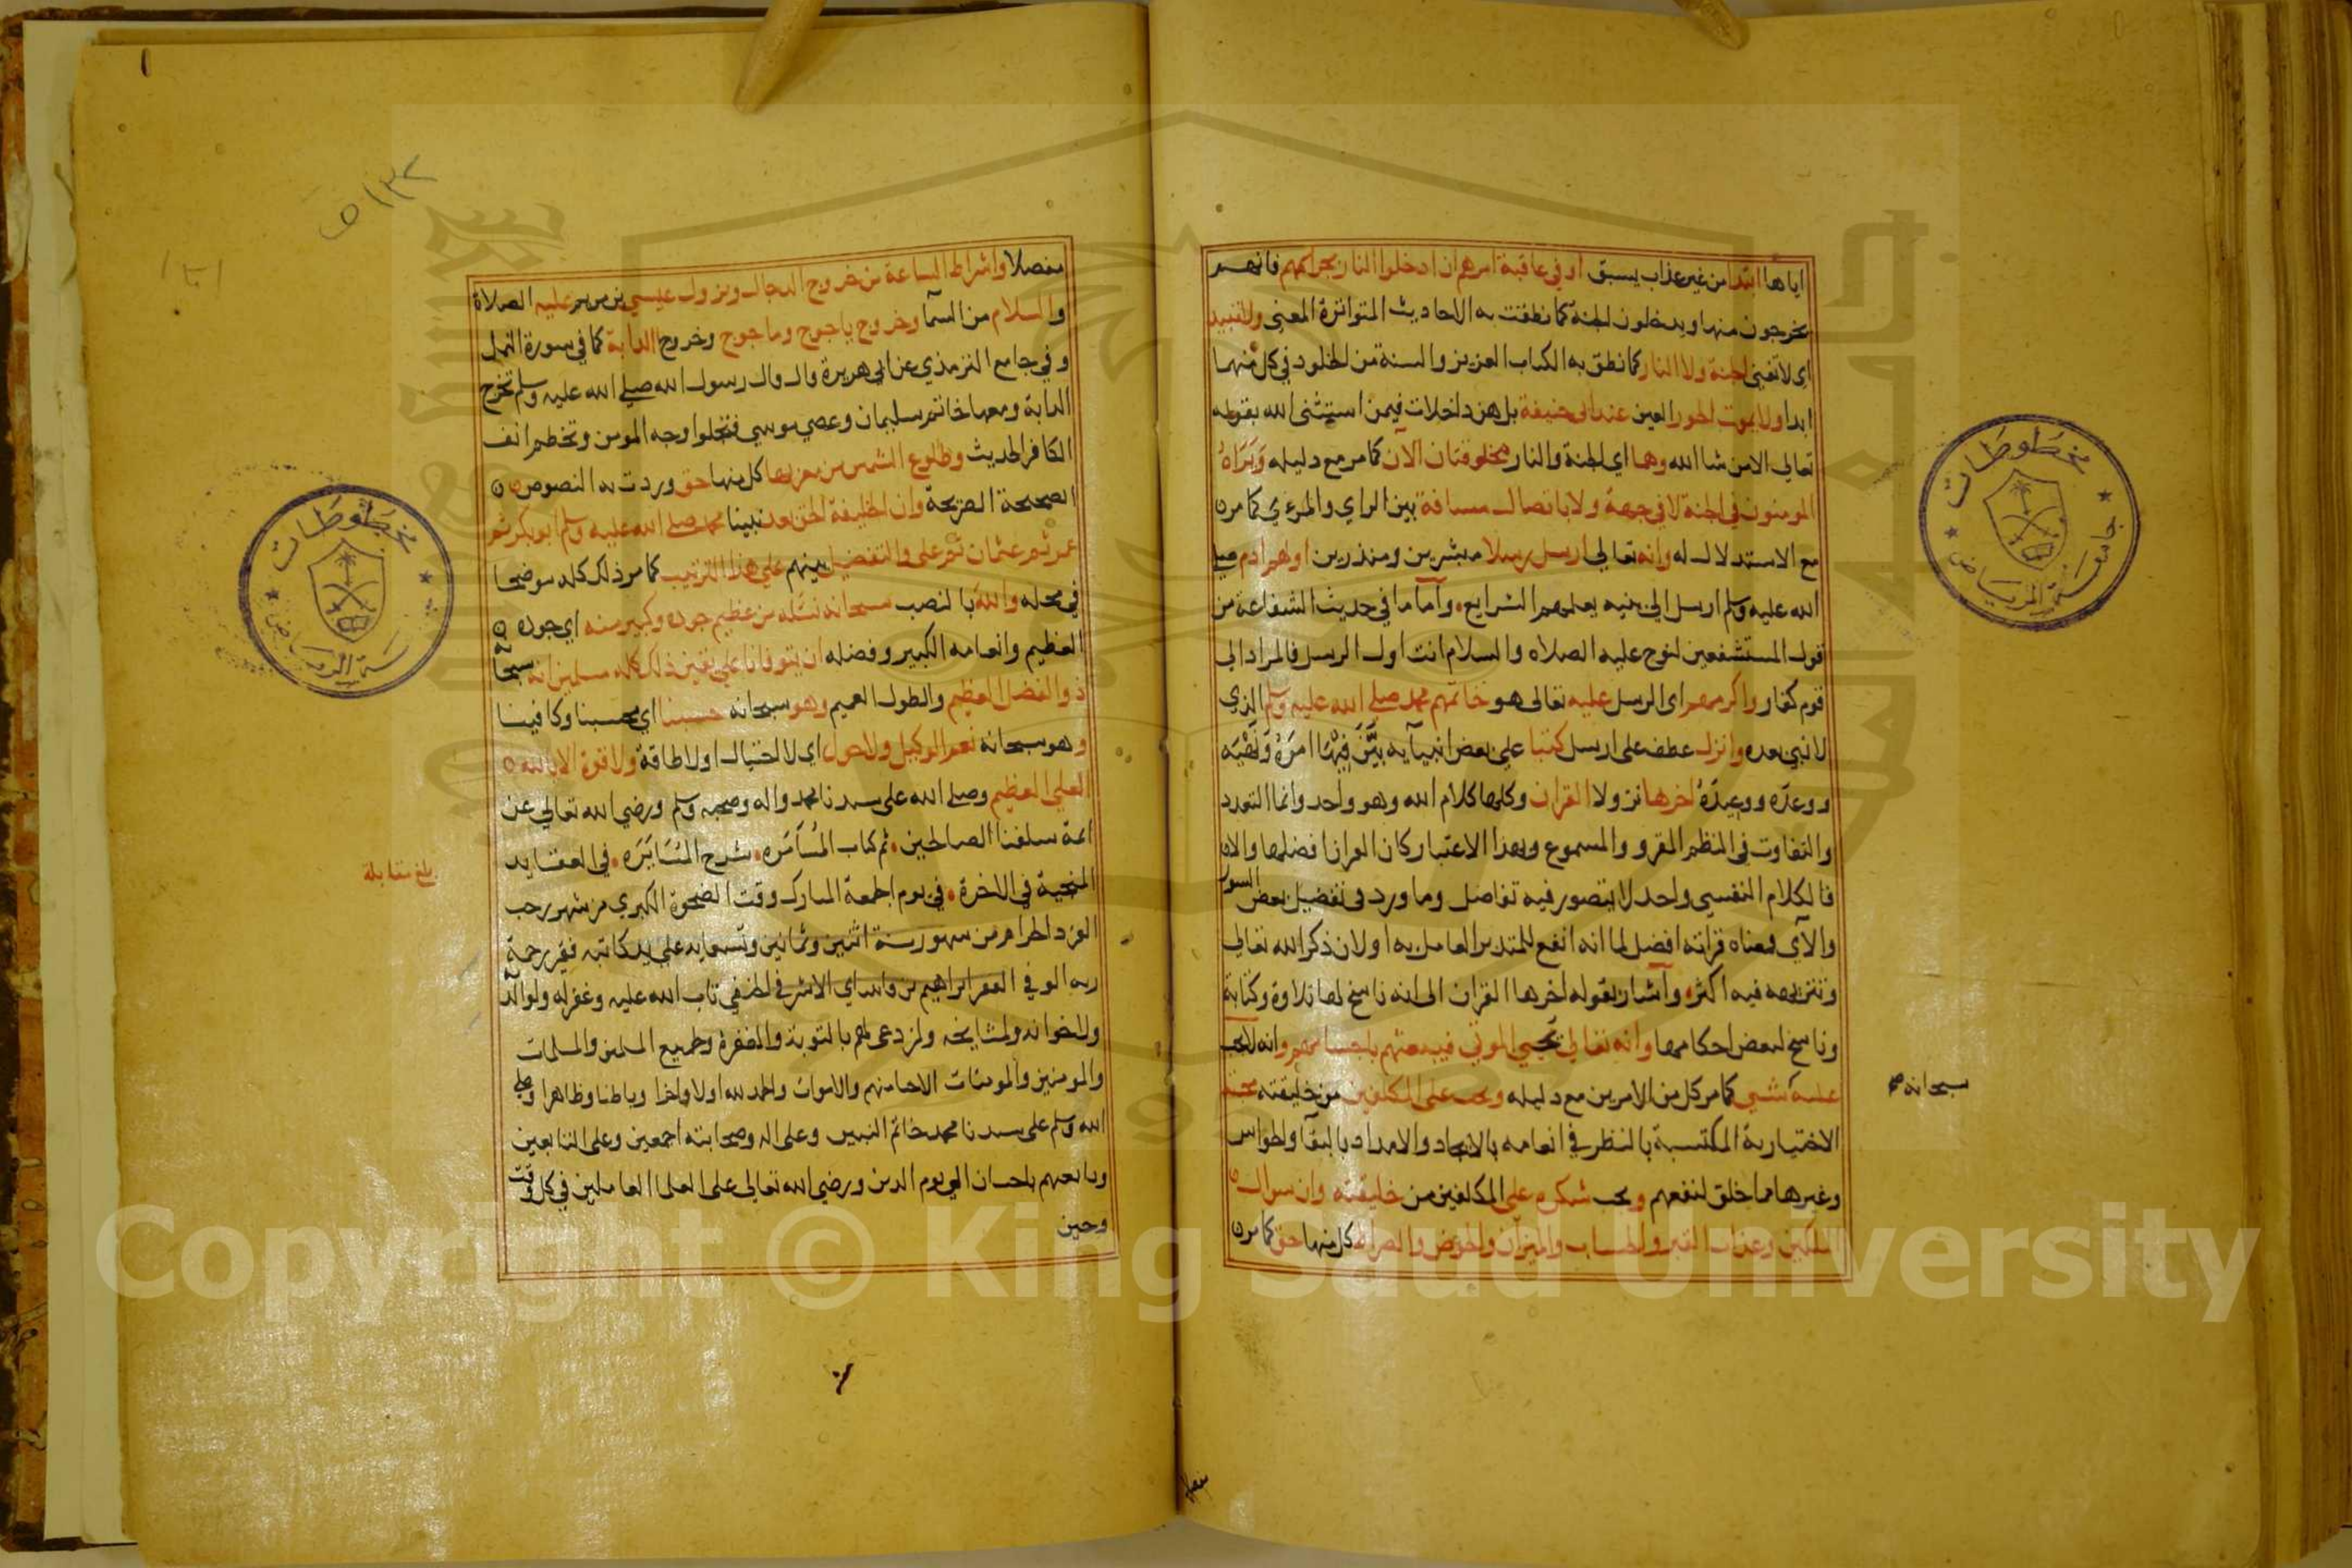 اياها ابتدا من غير عذاب يسبق او في عاقبة امرهم ان ادخلوا النار بجرايمهم فانهم
يخرجون منها ويدخلون الجنة كما نطقت به الاحاديث المتواترة المعنى ولا تبيد
اي لا تفنى الجنة ولا النار كما نطق به الكتاب العزيز والسنة من الخلود في كل منهما
ابدا ولا يموت الحور العين عند ابي حنيفة بل هن داخلات فيمن استثنى الله بقوله
تعالى الا من شا الله وهما اي الجنة والنار مخلوقتان الآن كما مر مع دليله ويراه
المومنون في الجنة لا في جهة ولا باتصال مسافة بين الراي والمرءي كما مر
مع الاستدلال له وانه تعالى ارسل رسلا مبشرين ومنذرين اولهم ادم صلى
الله عليه وسلم ارسل الى بنيه يعلمهم الشرايع وأما ما في حديث الشفاعة من
قول المستشفعين لنوح عليه الصلاه والسلام انت اول الرسل فالمراد الى
قوم كفار واكرمهم اى الرسل عليه تعالى هو خاتمهم محمد صلى الله عليه وسلم الذي
لا نبي بعده وانزل عطف على ارسل كتبا على بعض انبيآيه بيَّن فيها امره ونهيه
ووعده ووعيده اخرها نزولا القران وكلها كلام الله وهو واحد وانما التعدد
والتفاوت في النظم المقرو والمسموع وبهذا الاعتبار كان القران افضلها والا
فالكلام النفسي واحد لا يتصور فيه تفاضل وما ورد فى تفضيل بعض السور
والآي فمعناه قراته افضل لما انه انفع للمتدبر العامل به او لان ذكر الله تعالى
وتنزيهه فيه اكثر وأشار بقوله آخرها القران الى انه ناسخ لها تلاوة وكتابة
وناسخ لبعض احكامها وانه تعالى يحيي الموتى فيبعثهم باجسامهم وانه لا يجب
عليه شي كما مر كل من الامرين مع دليله ويجب على المكلفين من خليقته محبته
سبحانه صح
الاختيارية المكتسبة بالنظر في انعامه بالايجاد والامداد بالبقآ والحواس
وغيرها مما خلق لنفعهم ويجب شكره على المكلفين من خليقته وان سوال
الملكين وعذاب القبر والحساب والميزان والحوض والصراط كل منها حق كما مر
مفصلا
مفصلا واشراط الساعة من خروج الدجال ونزول عيسى بن مريم عليه الصلاة
والسلام من السمآ وخروج ياجوج وماجوج وخروج الدابة كما في سورة النمل
وفي جامع الترمذي عن ابي هريرة قال قال رسول الله صلى الله عليه وسلم تخرج
الدابة ومعها خاتم سليمان وعصي موسي فتجلوا وجه المومن وتخطم انف
الكافر الحديث وطلوع الشمس من مغربها كل منها حق وردت به النصوص
الصحيحة الصريحة وان الخليفة الحق بعد نبينا محمد صلى الله عليه وسلم ابو بكر ثم
عمر ثم عثمان ثم على والتفضيل بينهم على هذا الترتيب كما مر ذلك كله موضحا
في محله والله بالنصب سبحانه نسئله من عظيم جوده وكبير منه اي جوده
العظيم وانعامه الكبير وفضله ان يتوفانا على يقين ذلك كله مسلمين انه سبحانه
ذو الفضل العظيم والطول العميم وهو سبحانه حسبنا اي محسبنا وكافينا
وهو سبحانه نعم الوكيل ولا حول اي لا احتيال او لا طاقة ولا قوة الا بالله
العلي العظيم وصلى الله على سيدنا محمد واله وصحبه وسلم ورضي الله تعالى عن
ائمة سلفنا الصالحين تم كتاب المُسَامَرَه بشرح المُسَايَرَه في العقايد
المنجية في الاخرة في يوم الجمعة المبارك وقت الضحوة الكبرى من شهر رجب
الفرد الحرام من شهور سنة اثنين وثمانين وتسعمايه على يد كاتبه فقير رحمة
ربه الوفي الفقير ابراهيم بن الاشرفي الحنفي تاب الله عليه وغفر له ولوالديه
ولاخوانه ولمشايخه ولمن دعى لهم بالتوبة والمغفرة وجميع المسلمين والمسلمات
والمومنين والمومنات الاحيا منهم والاموات والحمد لله اولا واخرا وباطنا وظاهرا وصلى
الله وسلم على سيدنا محمد خاتم النبيين وعلى اله وصحابته اجمعين وعلى التابعين
وتابعيهم باحسان الى يوم الدين ورضي الله تعالى على العلما العاملين في كل وقت
وحين
بلغ مقابلة
٥١٣٢
مخطوطات
جامعة الرياض
مخطوطات
Copyright © King Saud University